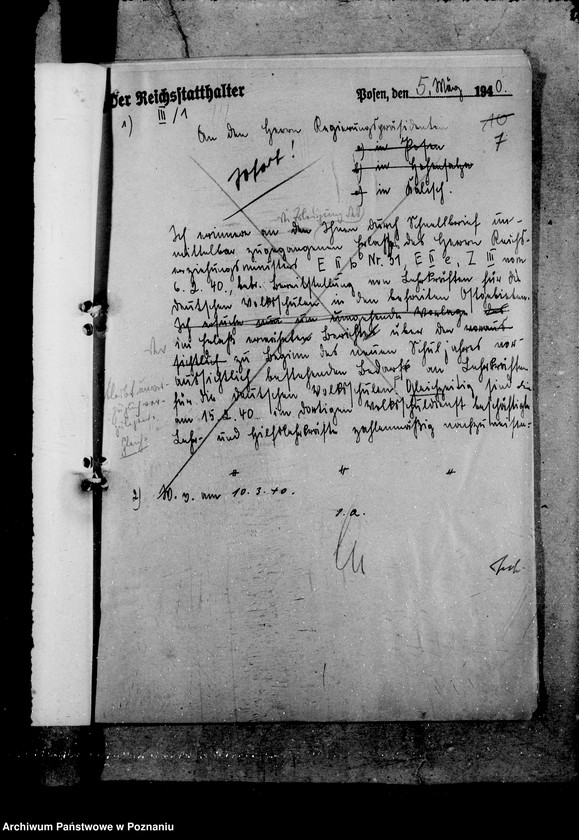 Der Reichsstatthalter
III/1
Posen, den 5. März 1940.
10
7
1) An den Herrn Regierungspräsidenten
a) in Posen
b) in Hohensalza
c) in Kalisch.
Sofort!
die Erledigung des
Ich erinnere an den Ihnen durch Schnellbrief un-
mittelbar zugegangenen Erlaß des Herrn Reichs-
erziehungsministers E II b Nr. 51, E II e, Z III vom
6.2.40., betr. Bereitstellung von Lehrkräften für die
deutschen Volksschulen in den befreiten Ostgebieten.
Ich ersuche nun um umgehende Vorlage des
im Erlaß erwähnten Berichtes über den voraus-
sichtlich zu Beginn des neuen Schuljahres vor-
aussichtlich bestehenden Bedarf an Lehrkräften
für die deutschen Volksschulen. Gleichzeitig sind die
am 15.2.40. im dortigen Volksschuldienst beschäftigten
Lehr- und Hilfslehrkräfte zahlenmäßig nachzuweisen.
2) W. v. am 10.3.40.
I.A.
Archiwum Państwowe w Poznaniu